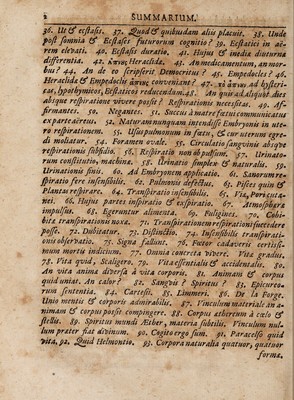 2 SUMMARIUM.
36. Ut & ecstasis. 37. Quod & quibusdam aliis placuit. 38. Unde
post somnia & Ecstases futurorum cognitio? 39. Ecstatici in aërem
elevati. 40. Ecstasis duratio. 41. Hujus & inedia diuturna
differentia. 42. ἄπνους Heraclida. 43. An medicamentum, an morbus?
44. An de eo scripserit Democritus? 45. Empedocles? 46.
Heraclida & Empedoclis ἄπνους conveniant? 47. ad hystericas,
hypothymicos, Ecstaticos reducendum. 48. An quis ad aliquot dies
absque respiratione vivere possit? Respirationis necessitas. 49. Affirmantes.
50. Negantes. 51. Succi à matre fœtui communicatus
ex parte aëreus. 52. Natura an nunquam intendisse Embryonis in utero
respirationem. 53. Usus pulmonum in fœtu, & cur uterum egredi
moliatur. 54. Foramen ovale. 55. Circulatio sanguinis absque
respiratione subsistit. 56. Respiratio non ab pulsum. 57. Urinatorum
constitutio, machina. 58. Urinatio simplex & naturalis. 59.
Urinationis finis. 60. Ad Embryonem applicatio. 61. Sanorum respiratio
fere insensibilis. 62. Pulmonis defectus. 63. Pisces quin &
Plantas respirare. 64. Transpiratio insensibilis. 65. Via, Portentanei.
66. Hujus partes inspiratio & expiratio. 67. Atmosphæra
impulsus. 68. Egerentur alimenta. 69. Fuligines. 70. Cohibita
transpirationis noxa. 71. Transpirationem respirationi succedere
posse. 72. Dubitatur. 73. Distinctio. 74. Insensibilis transpirationis
observatio. 75. Signa fallunt. 76. Fœtor cadaveris certissimum
mortis indicium. 77. Omnia concreta vivere. Vita gradus.
78. Vita quid, Scaligero. 79. Vita essentialis & accidentalis. 80.
An vita anima diversa à vita corporis. 81. Animam & corpus
quid uniat. An calor? 82. Sanguis? Spiritus? 83. Epicureorum
sententia. 84. Cartesii. 85. Linmeri. 86. De la Forge.
Unio mentis & corporis admirabilis. 87. Vinculum materiale animam
& corpus possit compingere. 88. Corpus æthereum à cœlo &
stellis. 89. Spiritus mundi Æther, materia subtilis, Vinculum nullum
prater fiat divinum. 90. Cogito ergo sum. 91. Paracelso quid
vita, 92. Quid Helmontio. 93. Corpora naturalia quatuor, quatuor
forma.